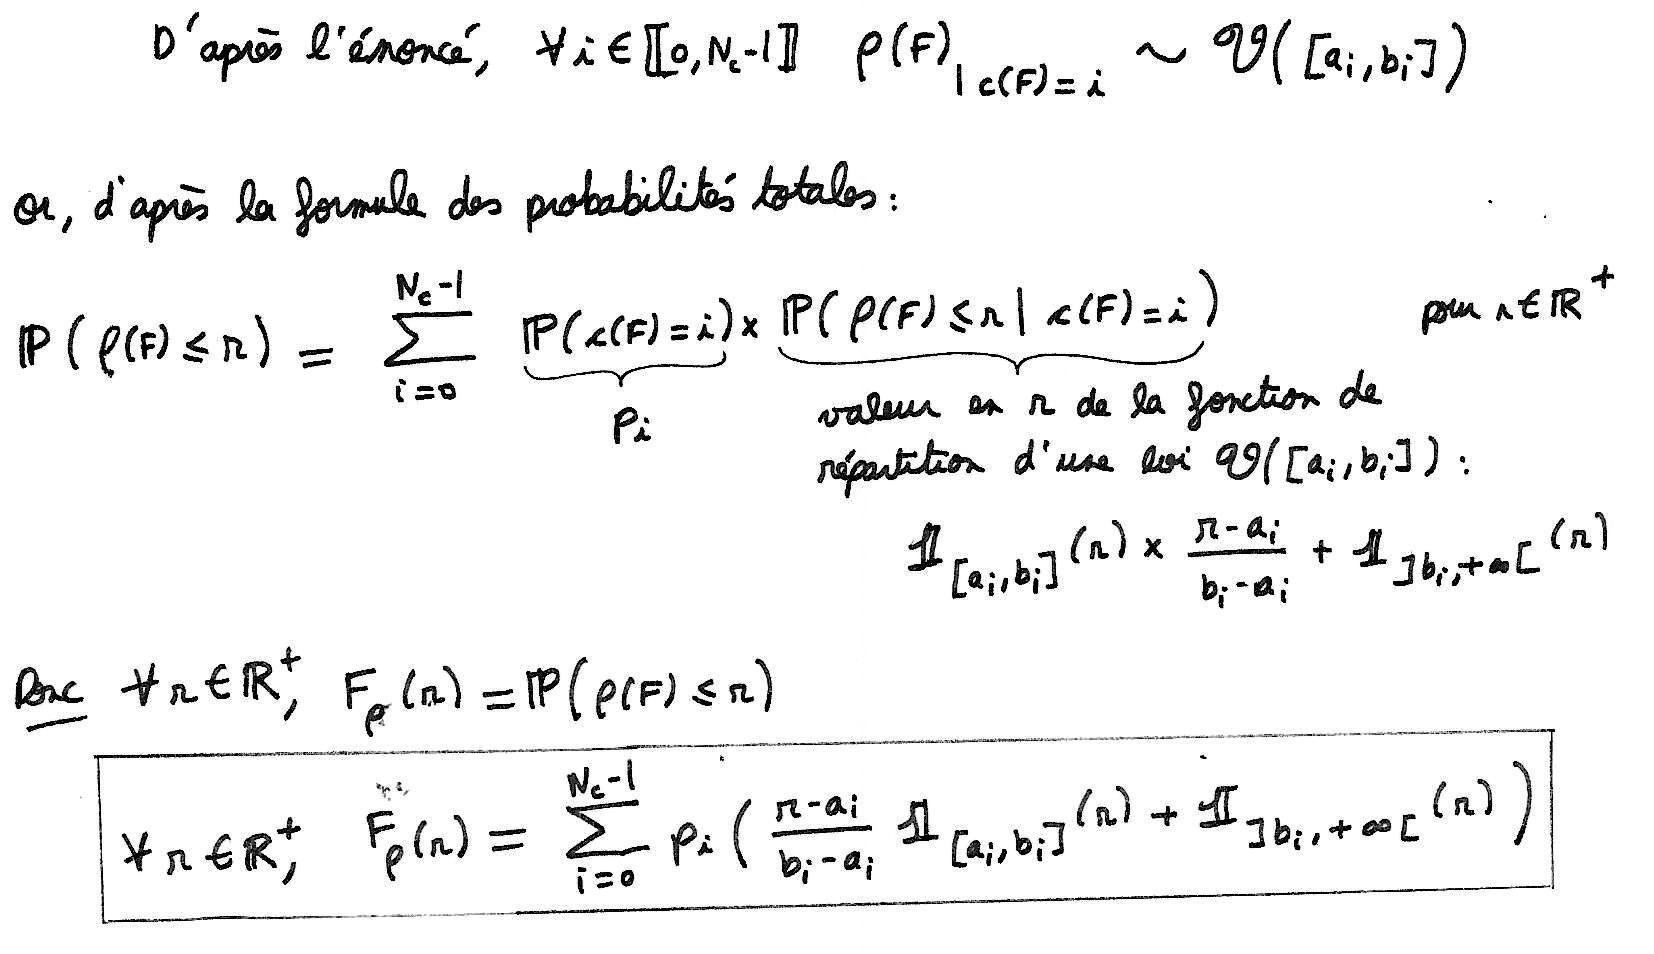 D'après l'énoncé, ∀i ∈ ⟦0, N_c-1⟧ ρ(F)_{| c(F)=i} ~ 𝒰([a_i, b_i])
or, d'après la formule des probabilités totales :
ℙ(ρ(F) ≤ r) = ∑_{i=0}^{N_c-1} ℙ(c(F)=i) × ℙ(ρ(F) ≤ r | c(F)=i) pour r ∈ ℝ^+
p_i
valeur en r de la fonction de
répartition d'une loi 𝒰([a_i, b_i]) :
𝟙_{[a_i, b_i]}(r) × \frac{r-a_i}{b_i-a_i} + 𝟙_{]b_i, +∞[}(r)
Donc ∀r ∈ ℝ^+, F_ρ(r) = ℙ(ρ(F) ≤ r)
∀r ∈ ℝ^+, F_ρ(r) = ∑_{i=0}^{N_c-1} p_i ( \frac{r-a_i}{b_i-a_i} 𝟙_{[a_i, b_i]}(r) + 𝟙_{]b_i, +∞[}(r) )